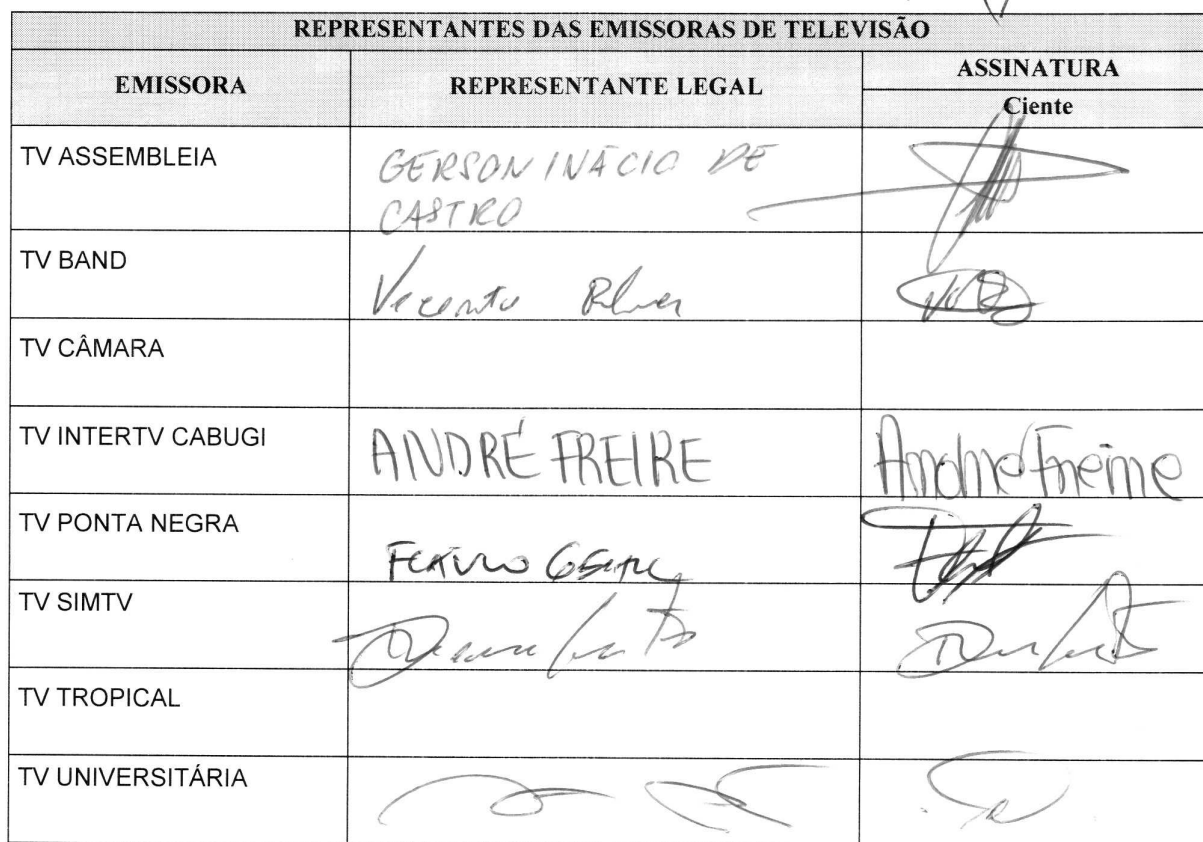 REPRESENTANTES DAS EMISSORAS DE TELEVISÃO
EMISSORA REPRESENTANTE LEGAL ASSINATURA
Ciente
TV ASSEMBLEIA GERSON INÁCIO DE
CASTRO
TV BAND Vicente
TV CÂMARA
TV INTERTV CABUGI ANDRÉ FREIRE André Freire
TV PONTA NEGRA
TV SIMTV
TV TROPICAL
TV UNIVERSITÁRIA